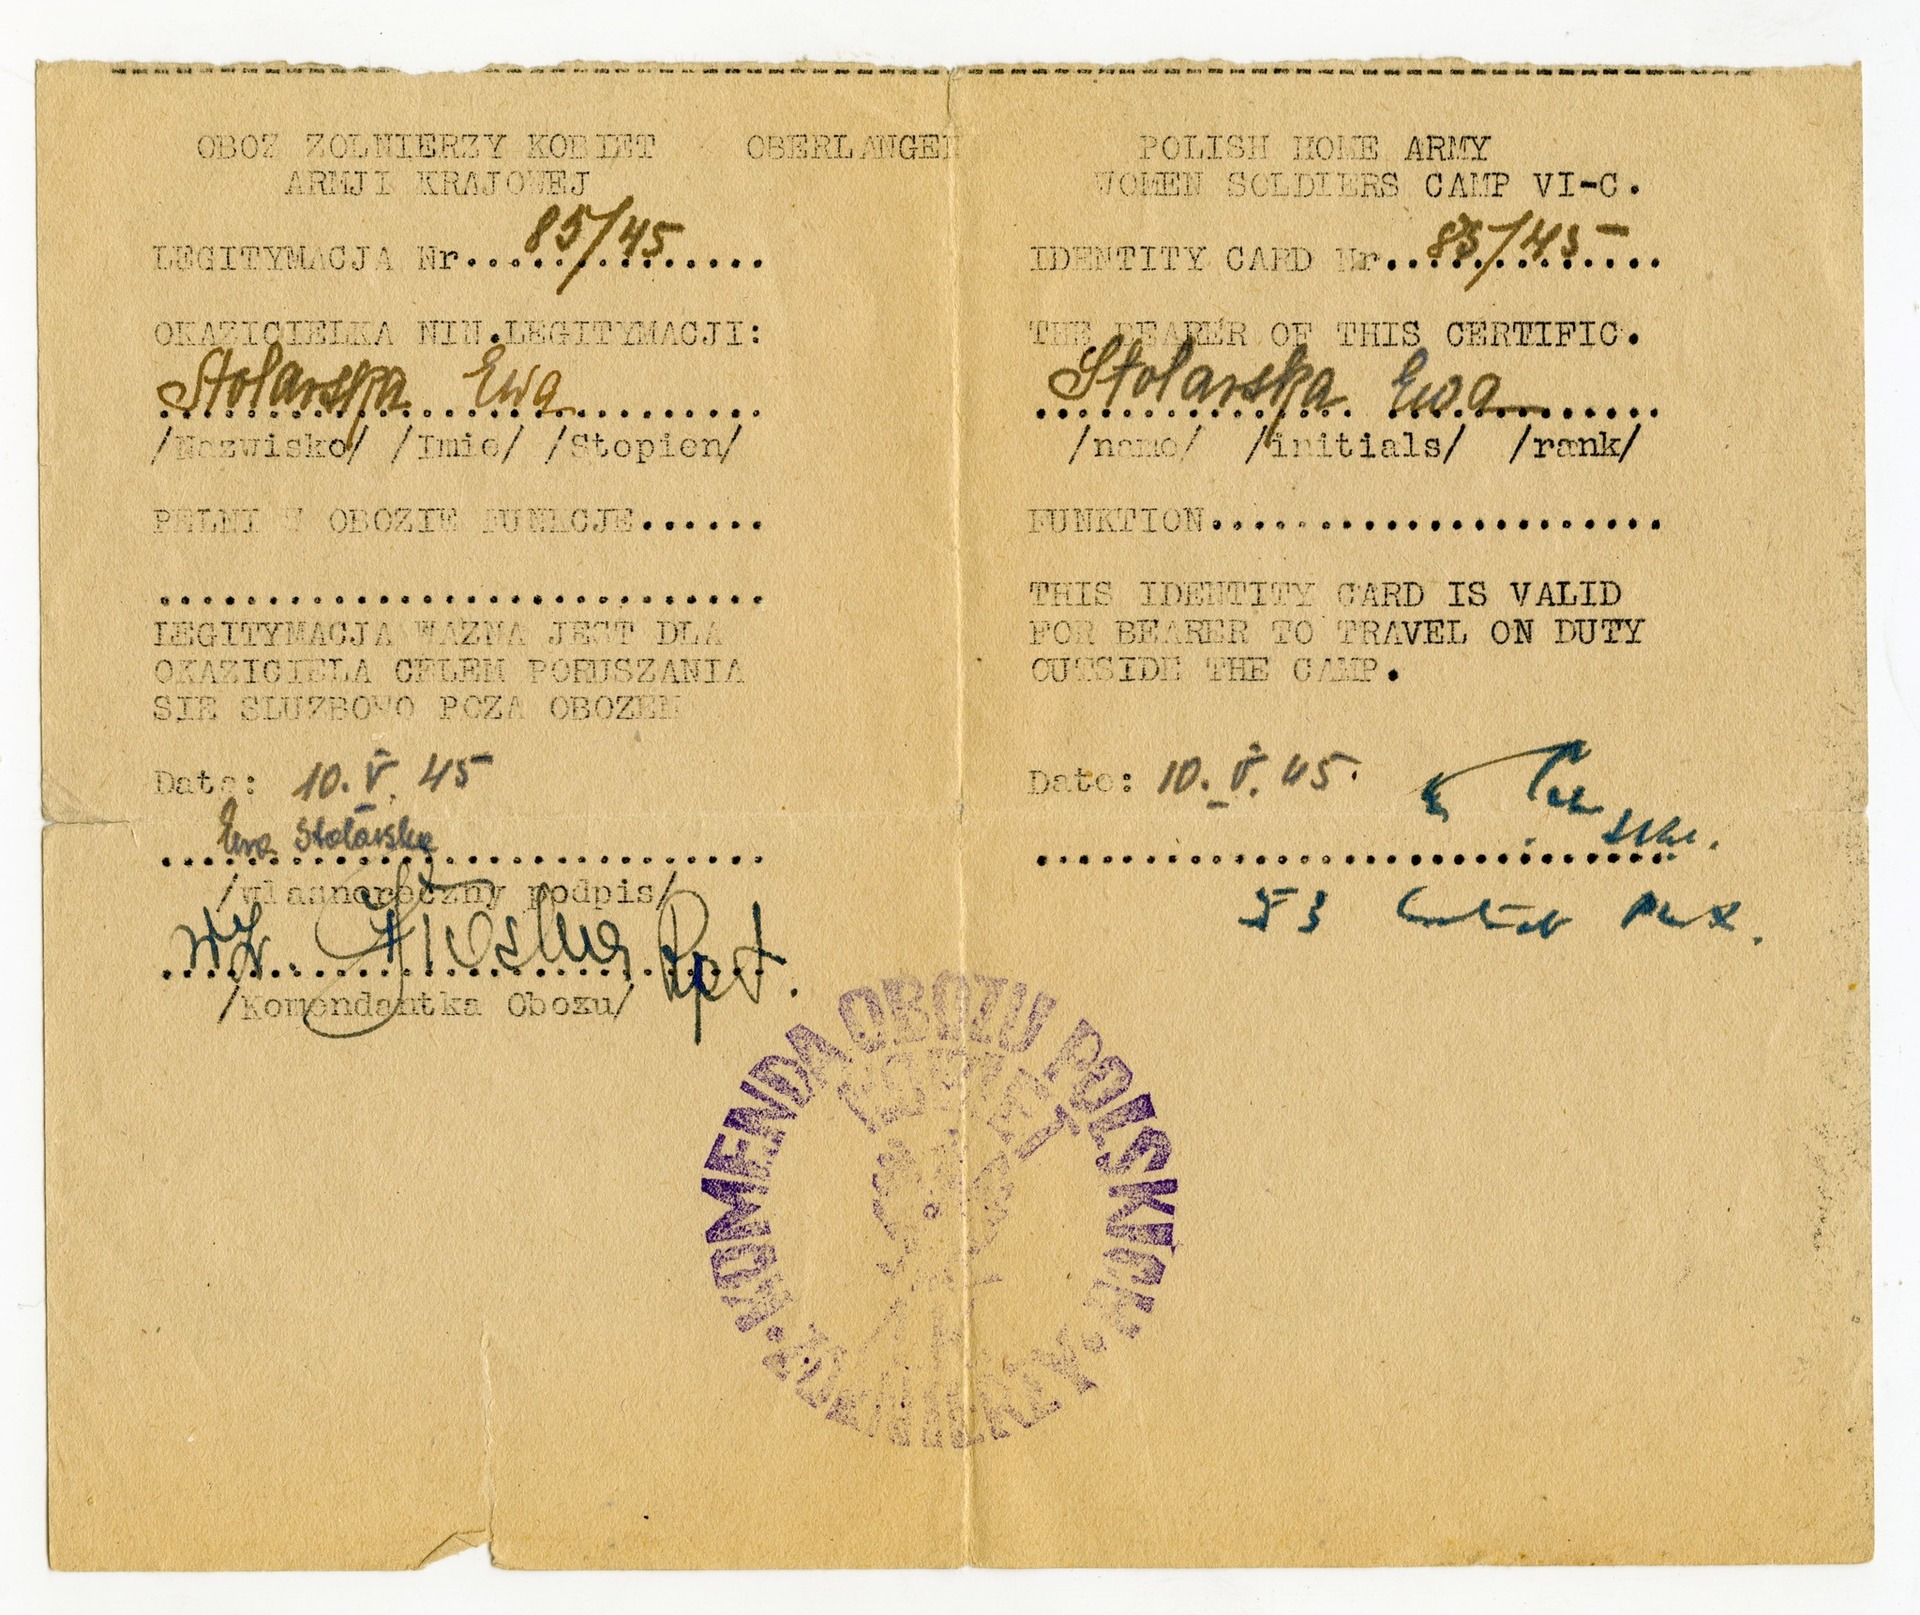 OBOZ ZOLNIERZY KOBIET OBERLANGEN
ARMJI KRAJOWEJ
LEGITYMACJA Nr. 85/45
OKAZICIELKA NIN.LEGITYMACJI:
Stolarska Ewa
/Nazwisko/ /Imie/ /Stopien/
PELNI W OBOZIE FUNKCJE......
............................
LEGITYMACJA WAZNA JEST DLA
OKAZICIELA CELEM PORUSZANIA
SIE SLUZBOWO POZA OBOZEM
Data: 10.V.45
Ewa Stolarska
/wlasnoreczny podpis/
wz. Kpt.
/Komendantka Obozu/
POLISH HOME ARMY
WOMEN SOLDIERS CAMP VI-C.
IDENTITY CARD Nr. 85/45
THE BEARER OF THIS CERTIFIC.
Stolarska Ewa
/name/ /initials/ /rank/
FUNKTION.....................
THIS IDENTITY CARD IS VALID
FOR BEARER TO TRAVEL ON DUTY
OUTSIDE THE CAMP.
Date: 10.V.45.
KOMENDA OBOZU POLSKICH
KOBIET
ŻOŁNIERZY